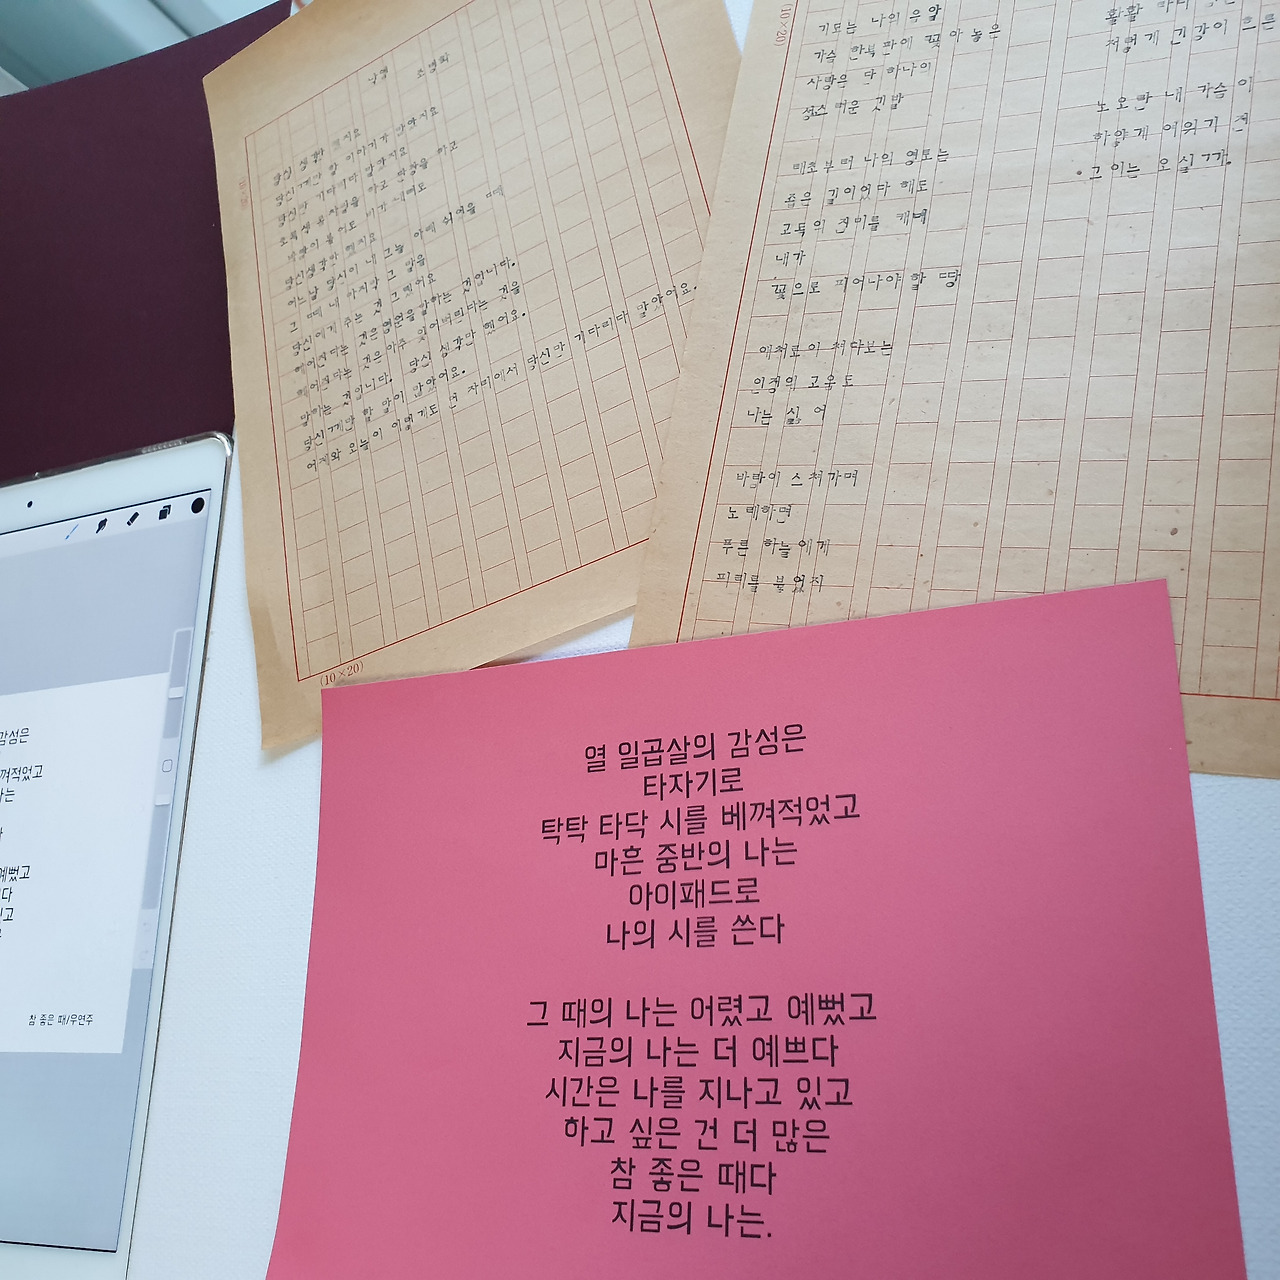 낙엽 조병화
당신 생각만 했지요
당신께만 할 이야기가 많았지요
당신만 기다리다 말았지요
하고 단장을 하고
바람이 불어도 비가 내려도
당신생각만 했지요
어느날 당신이 내 그늘 아래 쉬었을 때
그 때 내 마지막 그 말을
당신에게 주는 것 그랬어요
헤어진다는 것은 영원을 말하는 것입니다.
헤어진다는 것은 아주 잊어버린다는 것을
말하는 것입니다. 당신 생각만 했어요.
당신께만 할 말이 많았어요.
어제와 오늘이 이렇게도 먼 자리에서 당신만 기다리다 말았어요.
(10×20)
(10×20)
기도는 나의 음악
가슴 한복판에 꽂아 놓은
사랑은 단 하나의
성스러운 깃발
태초부터 나의 영토는
좁은 길이었다 해도
고독의 진미를 캐며
내가
꽃으로 피어나야 할 땅
애처로이 쳐다보는
인정의 고움도
나는 싫어
바람이 스쳐가며
노래하면
푸른 하늘에게
피리를 불었지
(10×20)
활활
저렇게 긴강이 흐른
노오란 내 가슴이
하얗게 여위기 전
그이는 오실까.
감성은
껴적었고
나는
예뻤고
참 좋은 때/우연주
열 일곱살의 감성은
타자기로
탁탁 타닥 시를 베껴적었고
마흔 중반의 나는
아이패드로
나의 시를 쓴다
그 때의 나는 어렸고 예뻤고
지금의 나는 더 예쁘다
시간은 나를 지나고 있고
하고 싶은 건 더 많은
참 좋은 때다
지금의 나는.